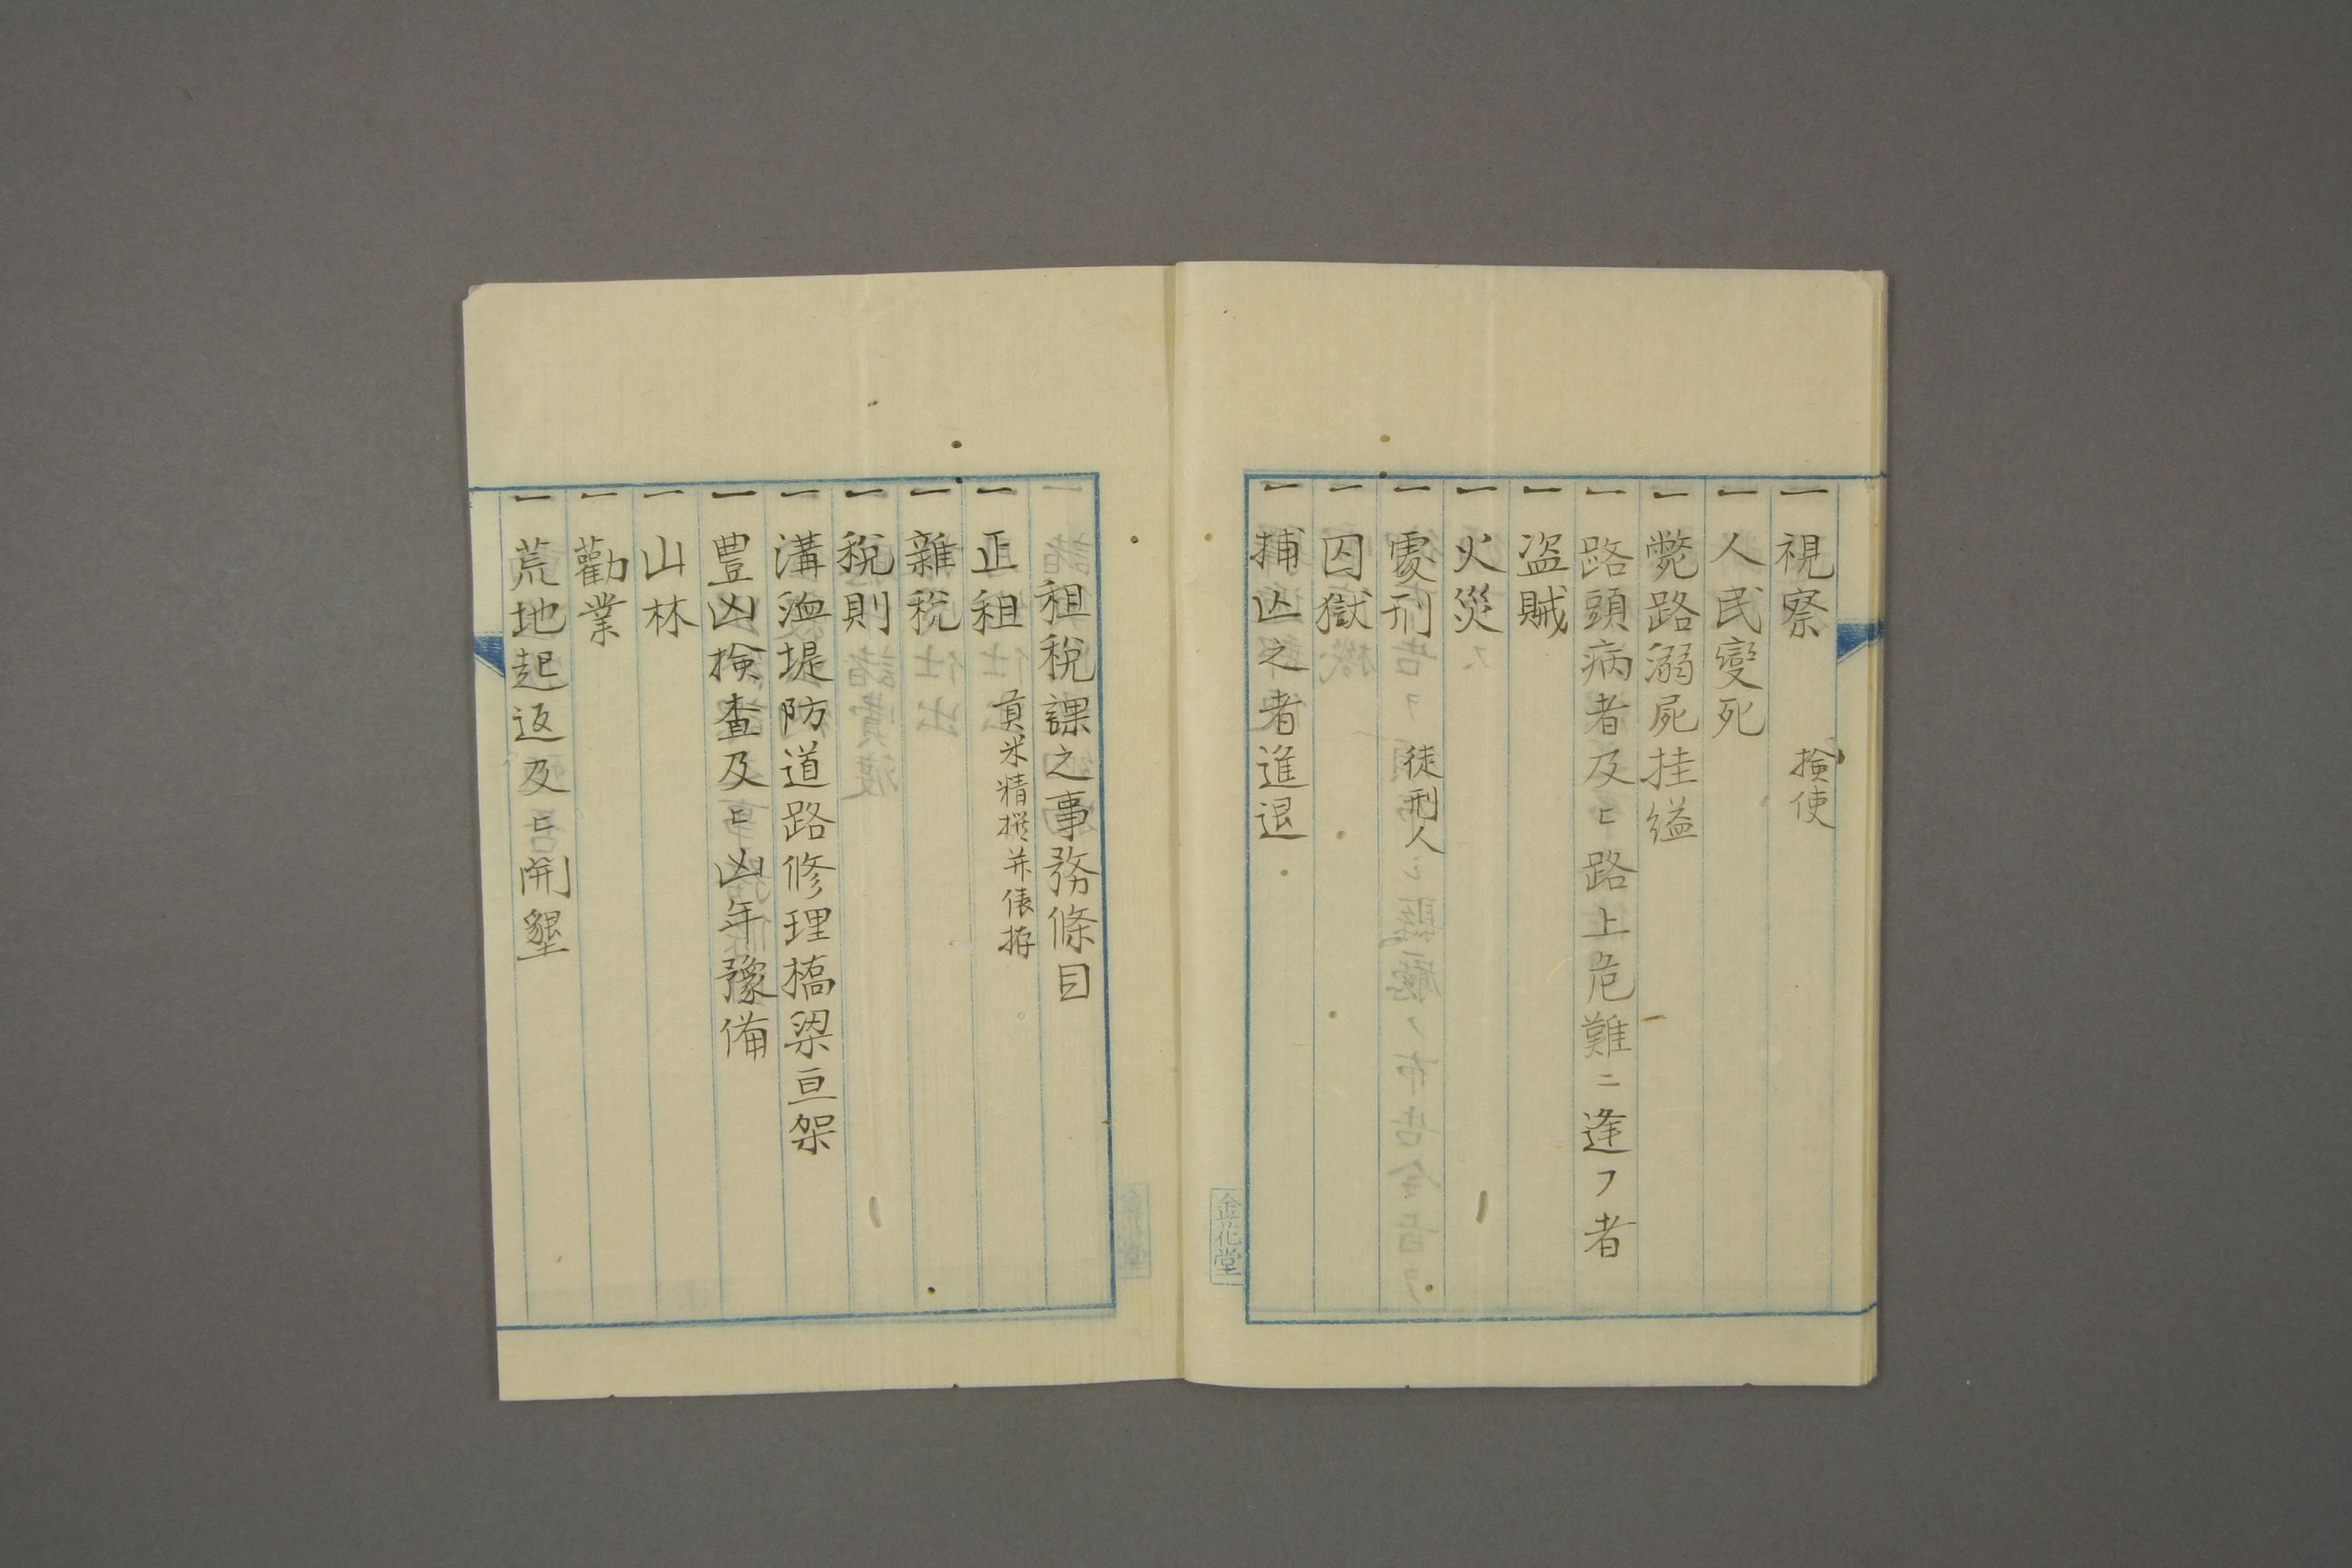 一視察 検使
一人民變死
一斃路溺死挂縊
一路頭病者及ヒ路上危難ニ逢フ者
一盗賊
一火災
一處刑 徒刑人
一囚獄
一捕亡之者進退
金花堂
租税課之事務條目
一正租 貢米精撰并俵拵
一雜税
一税則
一溝洫堤防道路修理橋梁亘架
一豊凶検査及ヒ凶年豫備
一山林
一勸業
一荒地起返及ヒ開墾